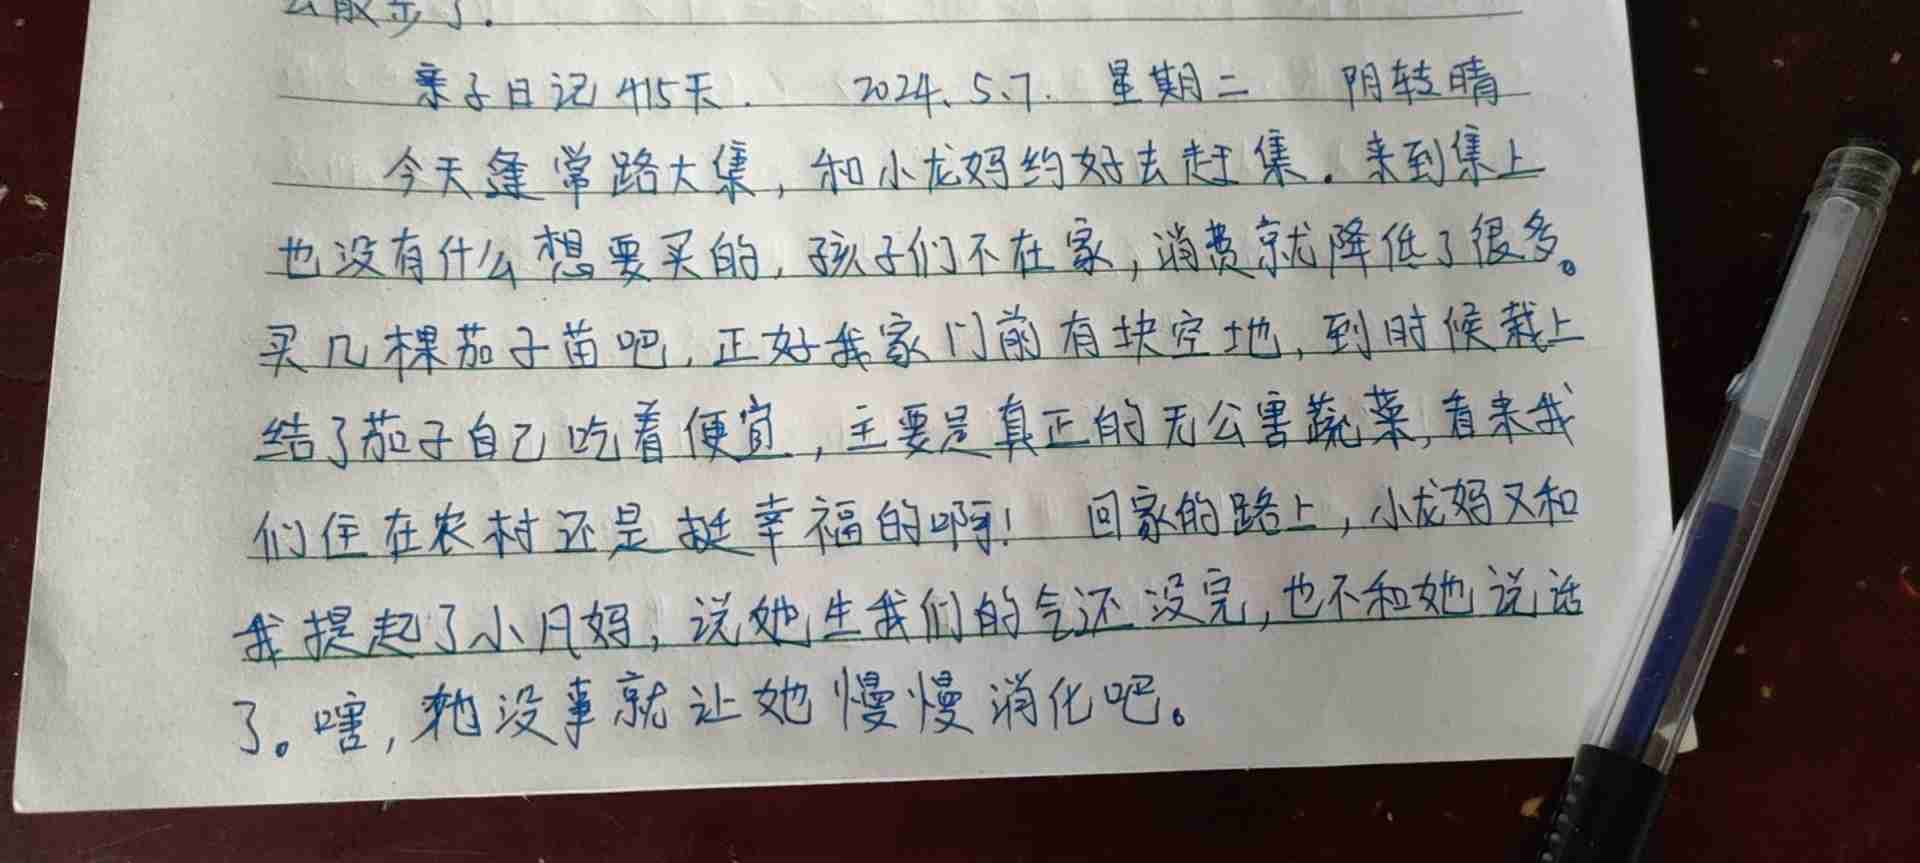 去散步了.
亲子日记415天. 2024.5.7. 星期二 阴转晴
今天逢常路大集,和小龙妈约好去赶集.来到集上
也没有什么想要买的,孩子们不在家,消费就降低了很多。
买几棵茄子苗吧,正好我家门前有块空地,到时候栽上
结了茄子自己吃着便宜,主要是真正的无公害蔬菜,看来我
们住在农村还是挺幸福的啊! 回家的路上,小龙妈又和
我提起了小凡妈,说她生我们的气还没完,也不和她说话
了。嗐,她没事就让她慢慢消化吧。